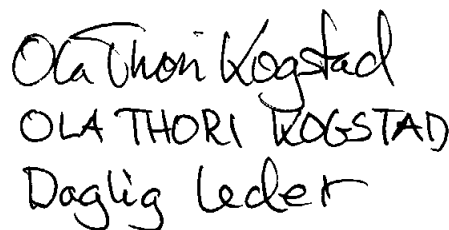 Ola Thori Kogstad
OLA THORI KOGSTAD
Daglig leder